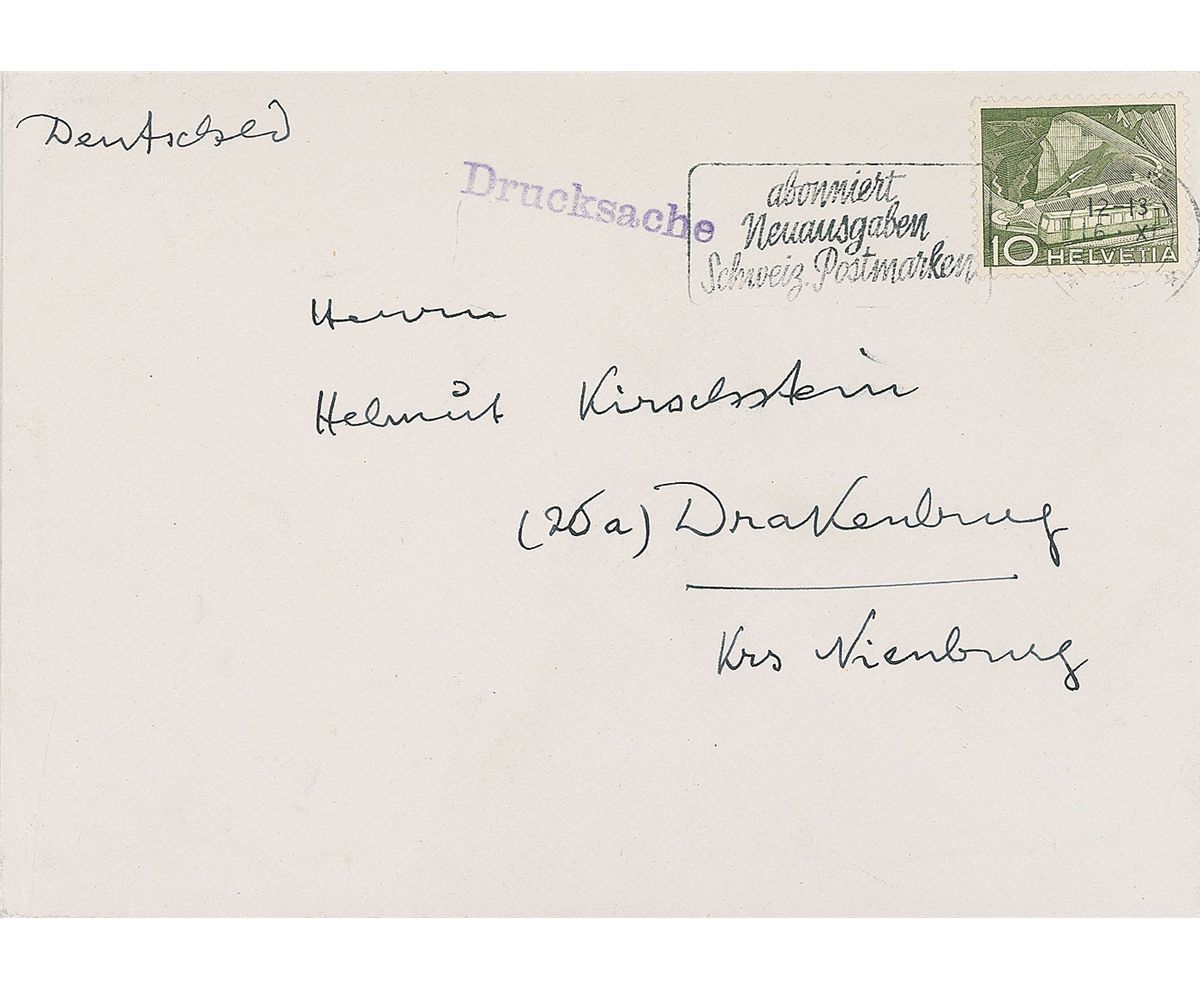 Deutschld
Drucksache
abonniert
Neuausgaben
Schweiz. Postmarken
12-13
6. X
10 HELVETIA
Herrn
Helmut Kirschstein
(20a) Drakenburg
Krs Nienburg